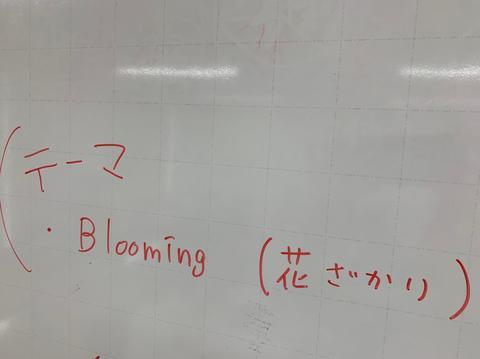 テーマ
・Blooming (花ざかり)